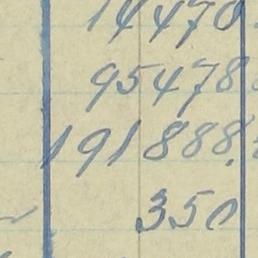 14470
95478
191888.
350